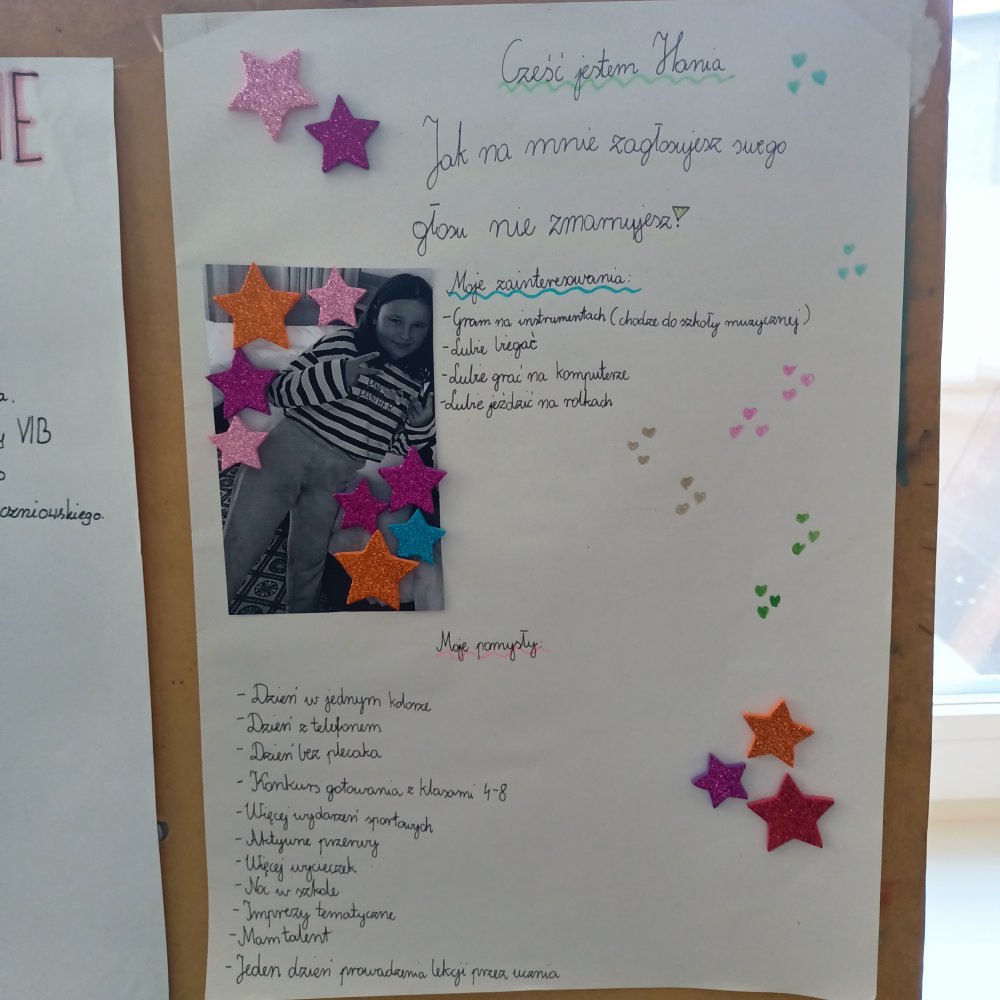 IE
a.
y VIB
o
czniowskiego.
Cześć jestem Hania
Jak na mnie zagłosujesz swego
głosu nie zmarnujesz!
Moje zainteresowania:
- Gram na instrumentach (chodze do szkoły muzycznej)
- Lubie biegać
- Lubie grać na komputerze
- Lubie jeździć na rolkach
PANTHER
Moje pomysły:
- Dzień w jednym kolorze
- Dzień z telefonem
- Dzień bez plecaka
- Konkurs gotowania z klasami 4-8
- Więcej wydarzeń sportowych
- Aktywne przerwy
- Więcej wycieczek
- Noc w szkole
- Imprezy tematyczne
- Mam talent
- Jeden dzień prowadzenia lekcji przez ucznia